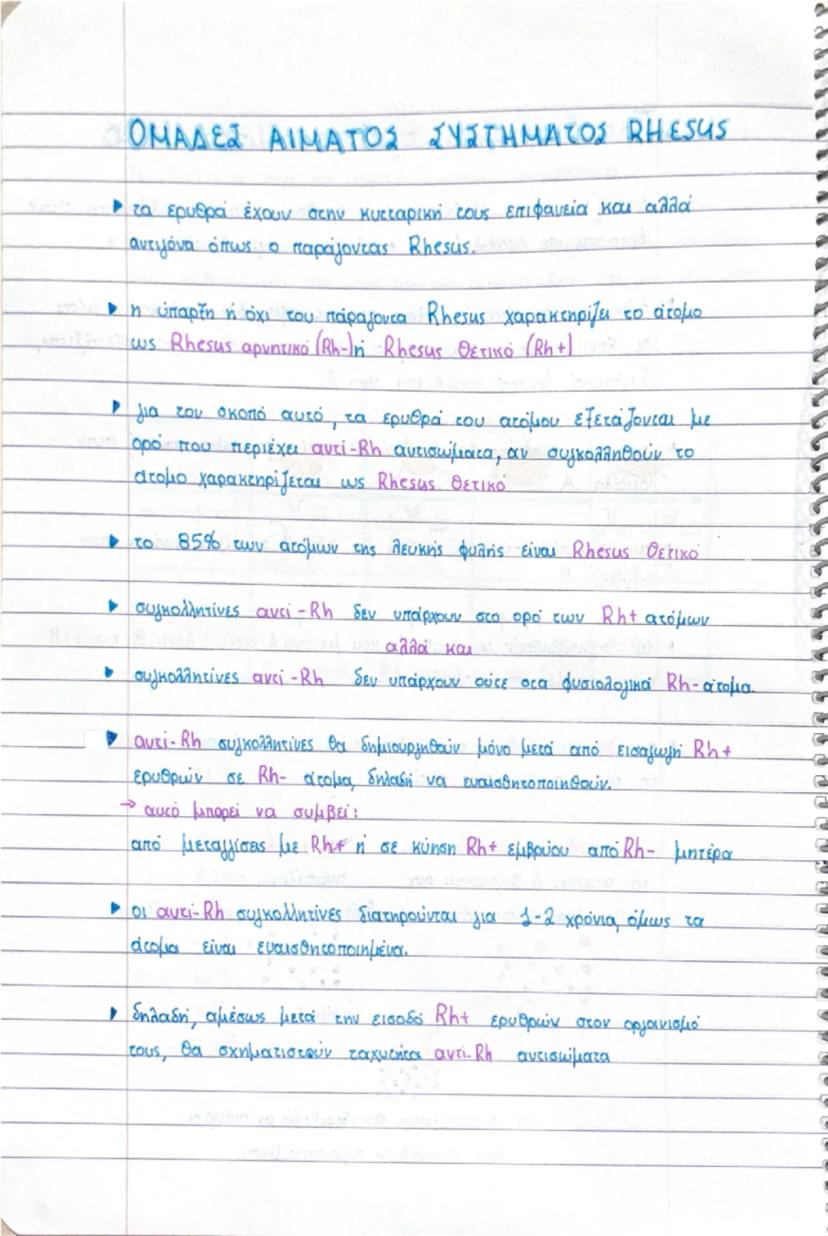 ΟΜΑΔΕΣ ΑΙΜΑΤΟΣ ΣΥΣΤΗΜΑΤΟΣ RHESUS
▸ τα ερυθρά έχουν στην κυτταρική τους επιφάνεια και αλλά
αντιγόνα όπως ο παράγοντας Rhesus.
▸ η ύπαρξη ή όχι του παράγοντα Rhesus χαρακτηρίζει το άτομο
ως Rhesus αρνητικό (Rh-) ή Rhesus θετικό (Rh+)
▸ για τον σκοπό αυτό, τα ερυθρά του ατόμου εξετάζονται με
ορό που περιέχει αντι-Rh αντισώματα, αν συγκολληθούν το
άτομο χαρακτηρίζεται ως Rhesus θετικό
▸ το 85% των ατόμων της λευκής φυλής είναι Rhesus θετικό
▸ συγκολλητίνες αντι-Rh δεν υπάρχουν στο ορό των Rh+ ατόμων
αλλά και
▸ συγκολλητίνες αντι-Rh δεν υπάρχουν ούτε στα φυσιολογικά Rh- άτομα.
▸ αντι-Rh συγκολλητίνες θα δημιουργηθούν μόνο μετά από εισαγωγή Rh+
ερυθρών σε Rh- άτομα, δηλαδή να ευαισθητοποιηθούν.
→ αυτό μπορεί να συμβεί:
από μεταγγίσεις με Rh+ ή σε κύηση Rh+ εμβρύου από Rh- μητέρα
▸ οι αντι-Rh συγκολλητίνες διατηρούνται για 1-2 χρόνια, όμως τα
άτομα είναι ευαισθητοποιημένα.
▸ δηλαδή, αμέσως μετά την είσοδό Rh+ ερυθρών στον οργανισμό
τους, θα σχηματιστούν ταχύτητα αντι-Rh αντισώματα